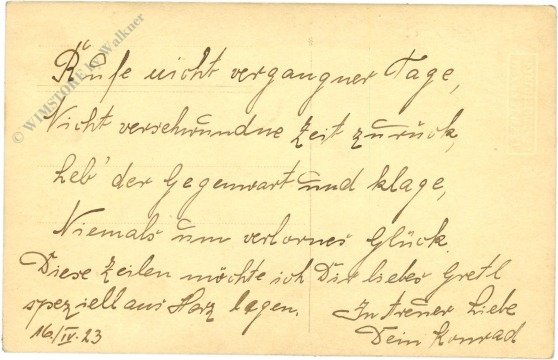 Rufe nicht vergangner Tage,
Nicht verschwundne Zeit zurück,
Leb' der Gegenwart und klage,
Niemals um verlornes Glück.
Diese Zeilen möchte ich Dir liebes Gretl
speziell ans Herz legen. In treuer Liebe
16/IV. 23 Dein Konrad
© WIMSTORE by Walkner